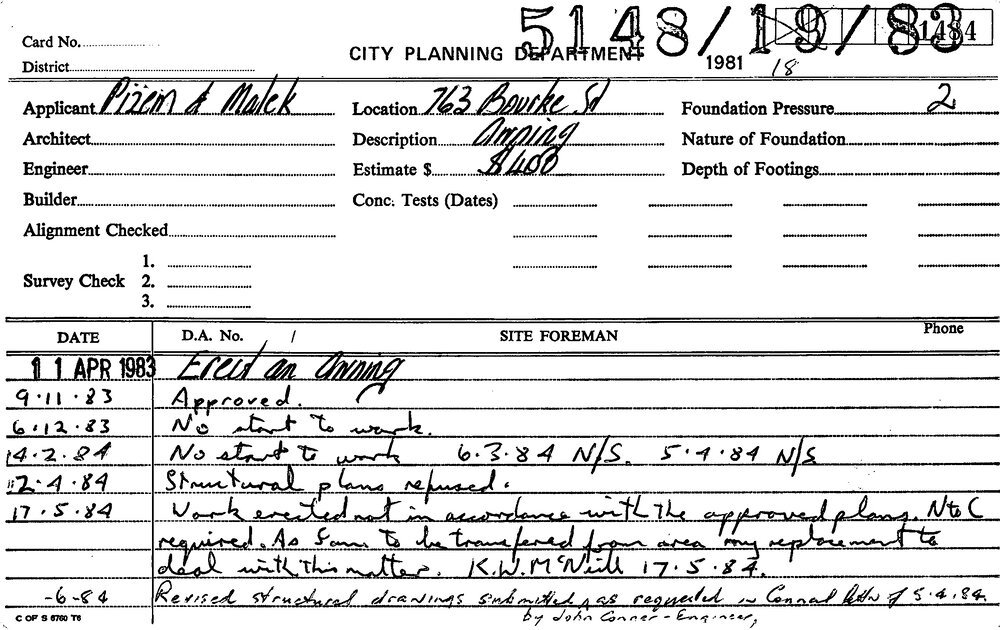 5148/19/83
1484
Card No.
CITY PLANNING DEPARTMENT 1981 18
District
Applicant Pizem & Malek Location 763 Bourke St Foundation Pressure 2
Architect Description Awning Nature of Foundation
Engineer Estimate $ $400 Depth of Footings
Builder Conc. Tests (Dates)
Alignment Checked
1.
Survey Check 2.
3.
DATE D.A. No. / SITE FOREMAN Phone
11 APR 1983 Erect an Awning
9.11.83 Approved.
6.12.83 No start to work.
14.2.84 No start to work 6.3.84 N/S. 5.4.84 N/S
12.4.84 Structural plans refused.
17.5.84 Work erected not in accordance with the approved plans. N to C
required. As I am to be transfered from area my replacement to
deal with this matter. K.W. McNeill 17.5.84.
-6-84 Revised structural drawings submitted, as requested in Council letter of 5.4.84.
C OF S 6760 T6 by John Conner - Engineer,